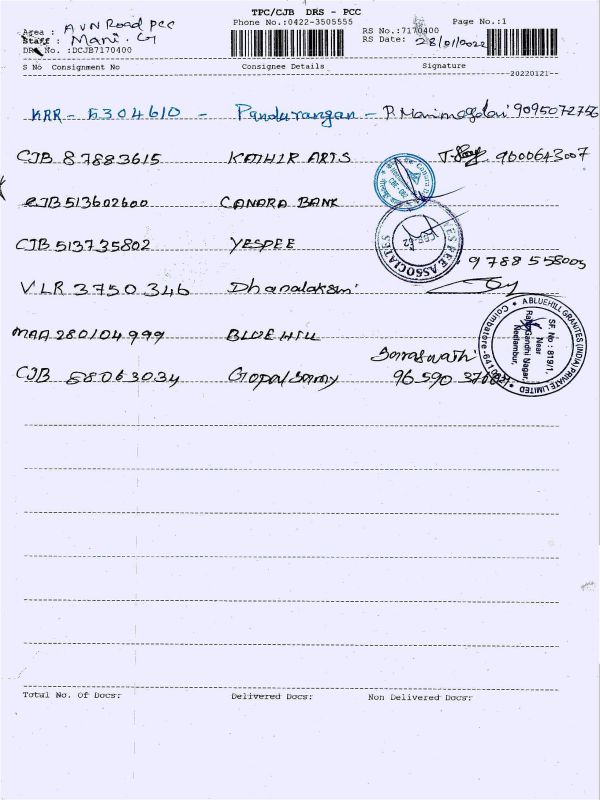 TPC/CJB DRS - PCC
Phone No.:0422-3505555 Page No.:1
Area : AVN Road PCC
Staff : Mani. G
RS No.:7170400
RS Date: 28/01/2022
DRS No. :DCJB7170400
S No Consignment No Consignee Details Signature
20220121
KRR - 5304610 - Pandurangan - P. Manimegalai 9095072756
CJB 87883615 KATHIR ARTS 9600643007
CJB 513602600 CANARA BANK
CJB 513735802 YESPEE
YESPEE ASSOCIATES
CBE-02
9788558005
VLR 3750346 Dhanalakshmi
MAA 280104999 BLUE HILL
A BLUEHILL GRANITES (INDIA) PRIVATE LIMITED
SF. No : 819/1,
Near
Rajiv Gandhi Nagar,
Neelambur,
Coimbatore-641
Saraswathi
CJB 58063034 Gopalsamy 96590
Total No. Of Docs: Delivered Docs: Non Delivered Docs: